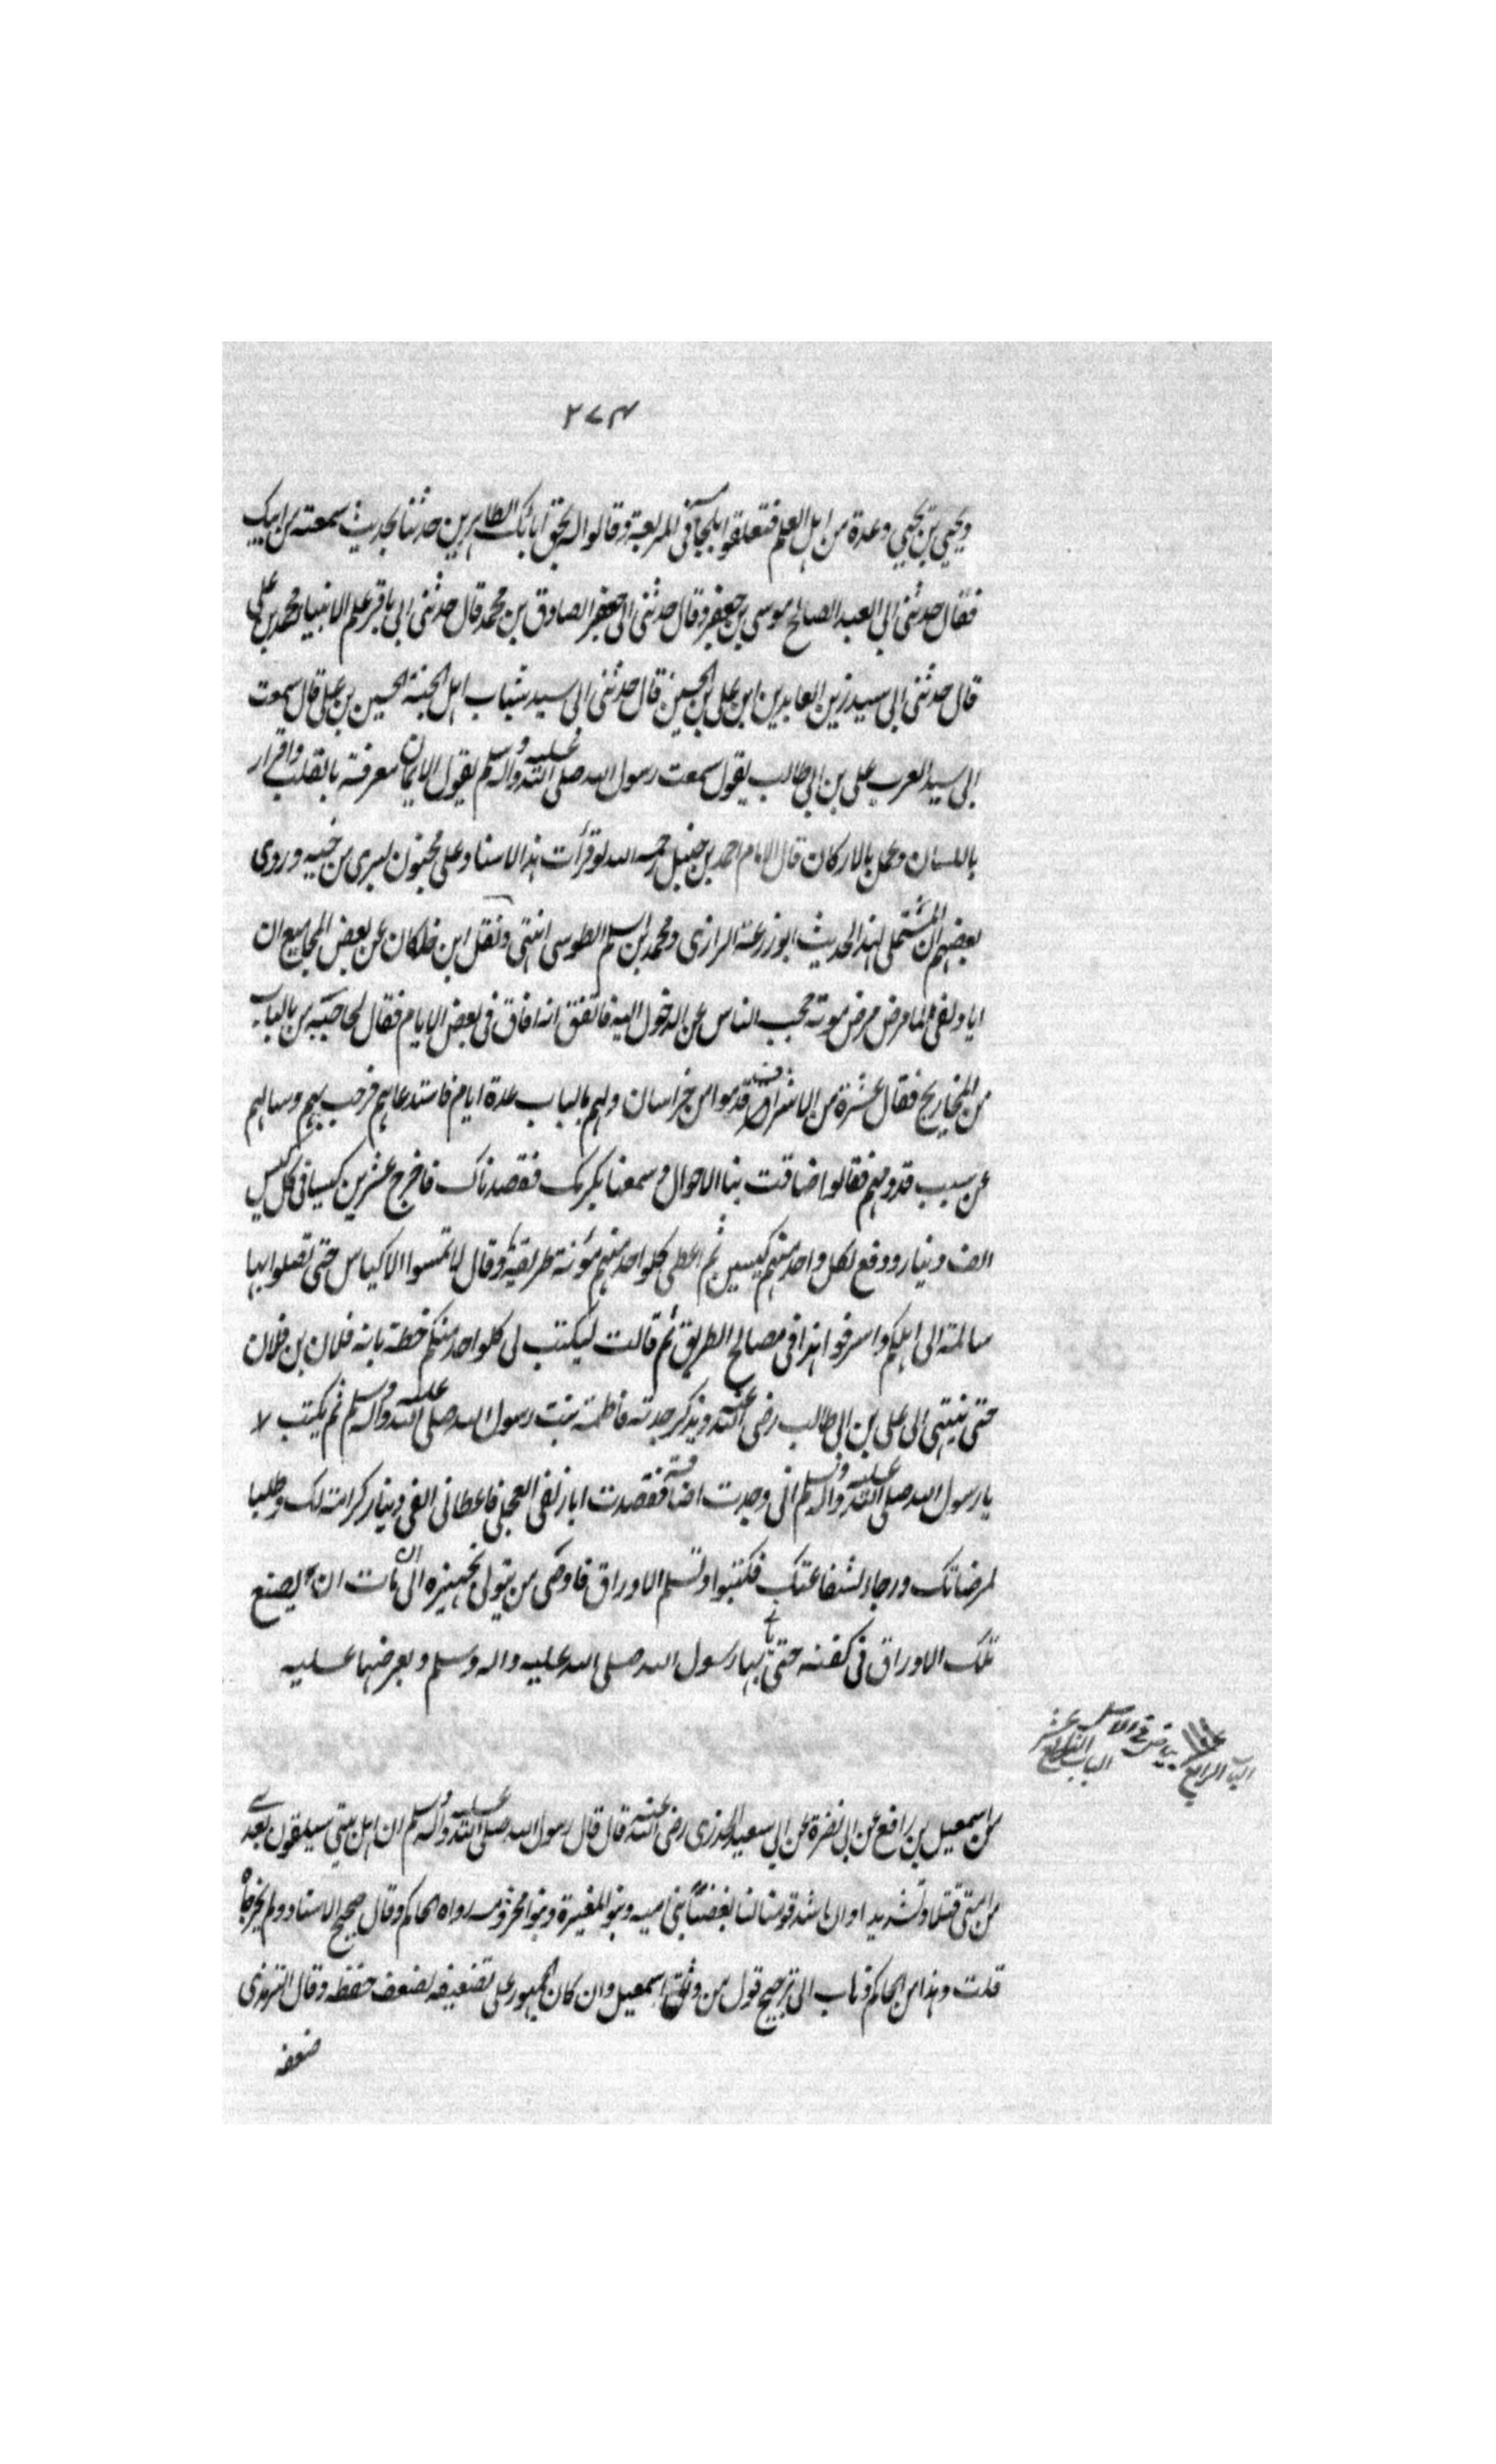 ٢٧٤
ويحيى بن يحيى وعدة من اهل العلم فتعلقوا بلجام في المربعة وقالوا له بحق ابائك الطاهرين حدثنا بحديث سمعته من ابيك
فقال حدثني ابي العبد الصالح موسى بن جعفر وقال حدثني ابي جعفر الصادق بن محمد قال حدثني ابي باقر علم الانبيا محمد بن علي
قال حدثني ابي سيد زين العابدين ابن علي بن الحسين قال حدثني ابي سيد شباب اهل الجنة الحسين بن علي قال سمعت
ابي سيد العرب علي بن ابي طالب يقول سمعت رسول الله صلى الله عليه واله وسلم يقول الايمان معرفة بالقلب واقرار
باللسان وعمل بالاركان قال الامام احمد بن حنبل رحمه الله لو قرأت هذا الاسناد على مجنون لبرى من جنبه وروى
بعضهم ان المستملي لهذا الحديث ابو زرعة الرازي ومحمد بن اسلم الطوسي انتهى ونقل ابن خلكان عن بعض المجاميع ان
ابا دلف لما مرض مرض موته حجب الناس عن الدخول اليه فاتفق انه افاق في بعض الايام فقال لحاجبه من بالباب
من المحاويج فقال عشرة من الاشراف قدموا من خراسان ولهم بالباب عدة ايام فاستدعاهم فرحب بهم وسالهم
عن سبب قدومهم فقالوا ضاقت بنا الاحوال وسمعنا بكرمك فقصدناك فاخرج عشرين كيسا في كل كيس
الف دينار ودفع لكل واحد منهم كيسين ثم اعطى كلواحد منهم مؤنة طريقه وقال لا تمسوا الاكياس حتى تصلوا بها
سالمة الى اهلكم واصرفوا هذا في مصالح الطريق ثم قالت ليكتب لي كلواحد منكم خطه بانه فلان بن فلان
حتى ينتهي الى علي بن ابي طالب رضي الله عنه ويذكر جدته فاطمة بنت رسول الله صلى الله عليه واله وسلم ثم يكتب لا
يا رسول الله صلى الله عليه واله وسلم اني وجدت اضاقة فقصدت ابا دلف العجلي فاعطاني الفي دينار كرامة لك وطلبا
لمرضاتك ورجاء لشفاعتك فكتبوا وتسلم الاوراق فاوصى من يتولى تجهيزه اذا مات ان يضع
تلك الاوراق في كفنه حتى يلقى بها رسول الله صلى الله عليه واله وسلم ويعرضها عليه
بياض في الاصل
الباب الرابع عشر
عن اسمعيل بن رافع عن ابي نضرة عن ابي سعيد الخدري رضي الله عنه قال قال رسول الله صلى الله عليه واله وسلم ان اهل بيتي سيلقون بعدي
من امتي قتلا وتشريدا وان اشد قومنا لنا بغضا بني اميه وبنو المغيرة وبنو مخزوم رواه الحاكم وقال صحيح الاسناد ولم يخرجاه
قلت وهذا من الحاكم ذهاب الى ترجيح قول من وثق اسمعيل وان كان الجمهور على تضعيفه لضعف حفظه وقال الترمذي
ضعفه